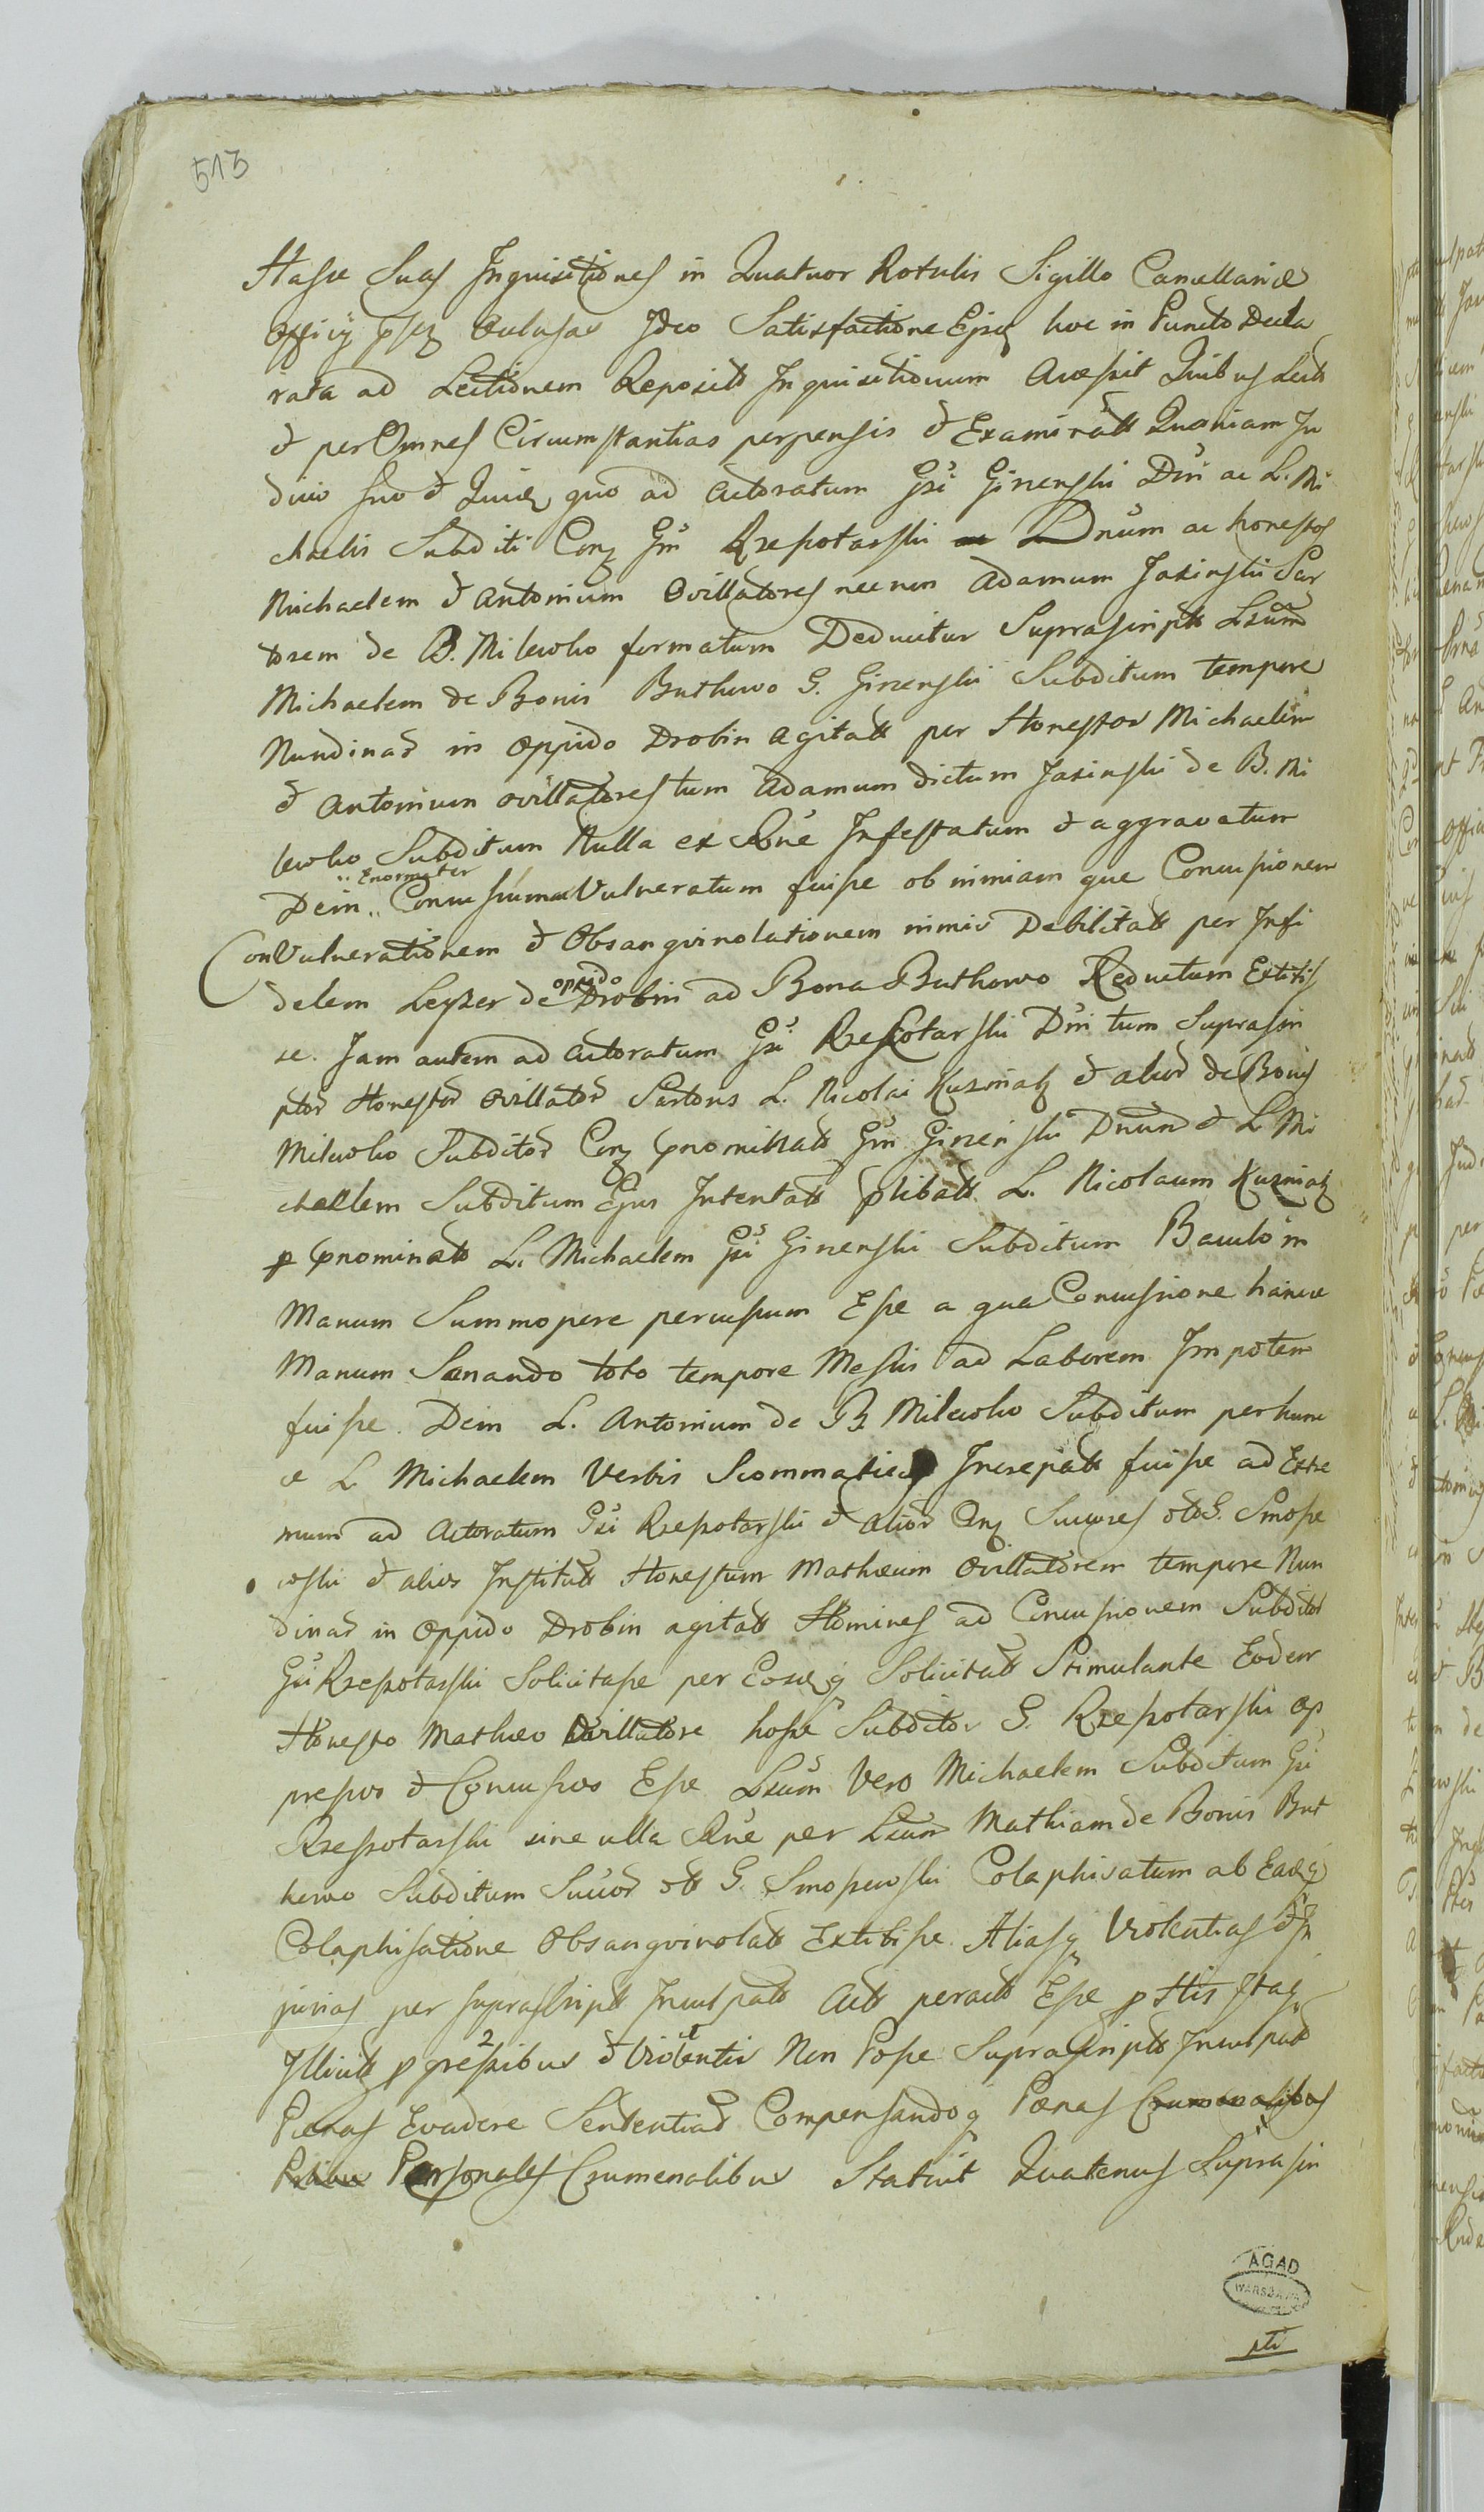 513
Hasce Suas Inquisitiones in Quatuor Rotulis Sigillo Cancellariæ
Officij Oclusas Ideo Satisfactione hoc in Puncto Decla
rata ad Lectionem Inquisitionum Accessit Quibus
et per Omnes Circumstantias perpensis et Quoniam Ju
dicio suo et quo ad Actoratum Gsi Ginenski Dni ac L. Mi
chaelis Subditi Gm Rzeszotarski Dnum ac honestos
Michaelem et Antonium Ovillatores necnon Adamum Jasinski Sar
torem de B. Milewko formatum Deducitur Suprascriptt Lsum
Michaelem de Bonis Buthowo G. Ginenski Subditum tempore
Nundinar in Oppido Drobin Agitatt per Honestos Michaelem
et Antonium Ovillatores tum Adamum dictum Jasinski de B. Mi
lewko Subditum Nulla ex Rne Infestatum et aggravatum
Dein Enormiter Vulneratum fuisse ob nimiam que Concussionem
ConVulnerationem et Obsangvinolationem nimis Debilitatt per Infi
delem Leyzer de oppido Drobin ad Bona Buthowo Reductum Extitis
se. Jam autem ad Actoratum Gsi Rzeszotarski Dni tum Suprascri
ptor Honestor Ovillator Sartoris L. Nicolai et alior de Bonis
Milewko Subditor Gm Ginenski Dnum et L Mi
chaelem Subditum Ejus Intentatt L. Nicolaum
L. Michaelem Gsi Ginenski Subditum Baculo in
Manum Summopere percussum Esse a qua Concussione hancce
Manum Sanando toto tempore Messis ad Laborem Impotem
fuisse. Dein L. Antonium de B Milewko Subditum per hunc
ce L Michaelem Verbis Increpatt fuisse ad Extre
mum ad Actoratum Gsi Rzeszotarski et Alior
et alios Institutt Honestum Mathæum Ovillatorem tempore Nun
dinar in Oppido Drobin agitatt Homines ad Concussionem Subditor
Gsi Rzeszotarski Solicitasse per Solicitatt Stimulante Eodem
Honesto Mathæo Ovillatore Subditos G. Rzeszotarski Op
pressos et Concussos Esse Lsum Vero Michaelem Subditum Gsi
Rzeszotarski sine ulla Rne per Lsum Mathiam de Bonis But
howo Subditum G. Colaphisatum ab
Colaphisatione Obsangvinolatt Extitisse Aliasq Violentias et In
jurias per suprascriptt Inculpatt peractt Esse
Illicitt gressibus et Violentiis Non Posse Suprascriptt Inculpatt
Pænas Evadere Compensandoq Pænas
Personales Crumenalibus Statuit Quatenus Suprascri
AGAD
WARSZAWA
pti